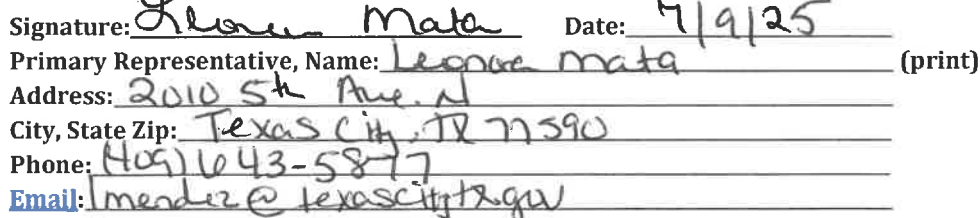 Signature: Leonor Mata Date: 7/9/25
Primary Representative, Name: Leonor Mata (print)
Address: 2010 5th Ave. N
City, State Zip: Texas City, TX 77590
Phone: (409) 643-5877
Email: lmendez@texascitytx.gov